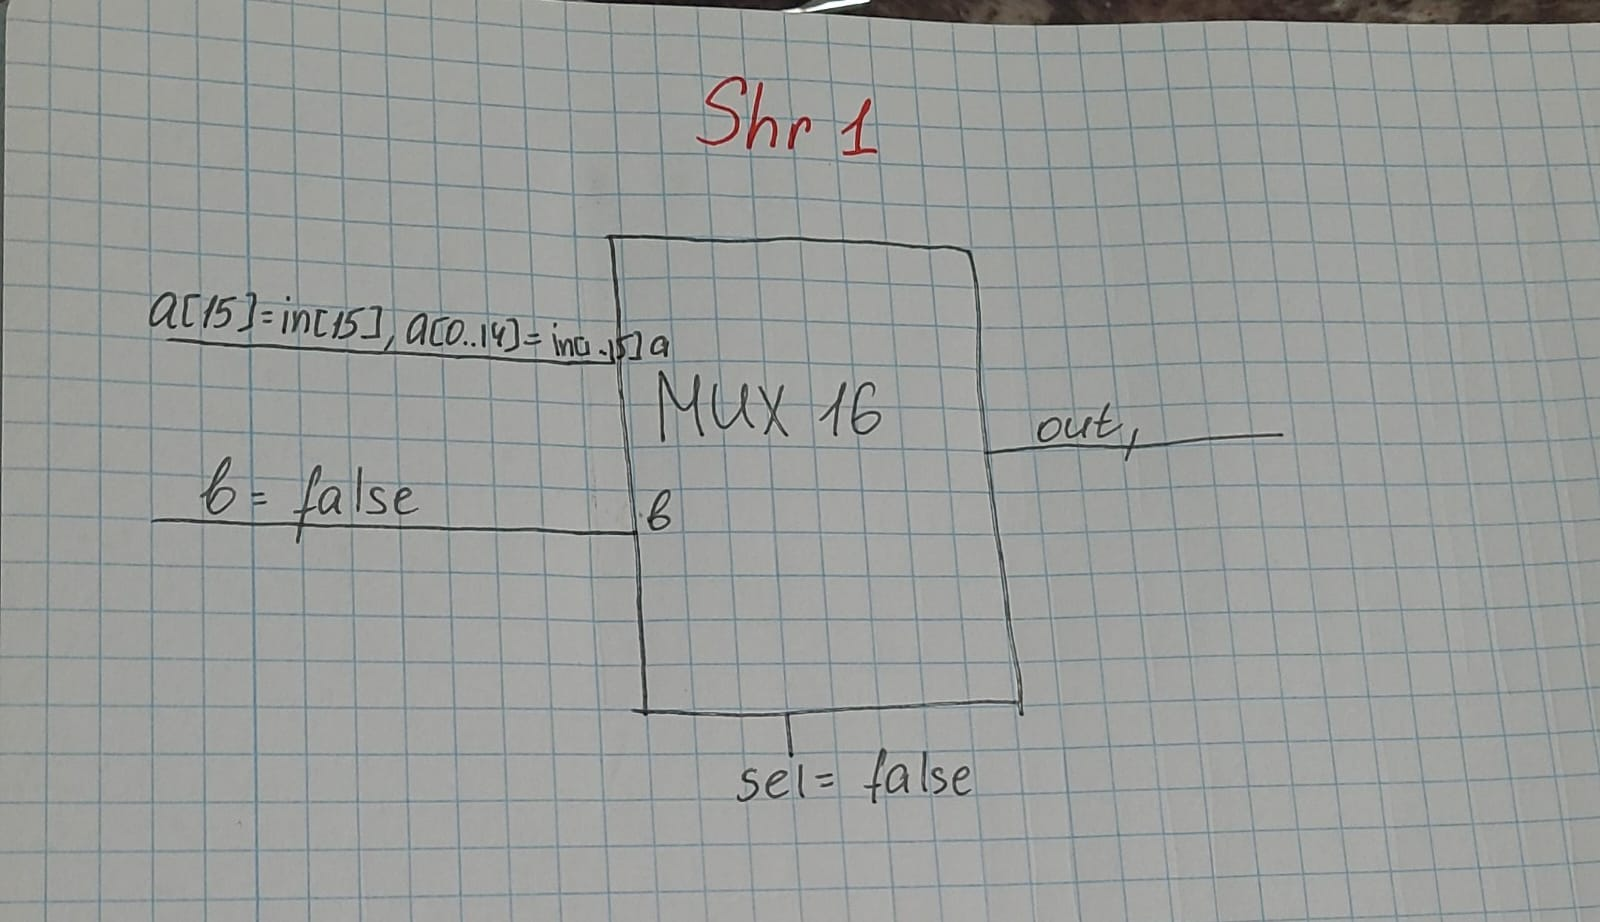 Shr 1
a[15]=in[15], a[0..14]= in[1..15] a
MUX 16
out,
b= false
b
sel= false